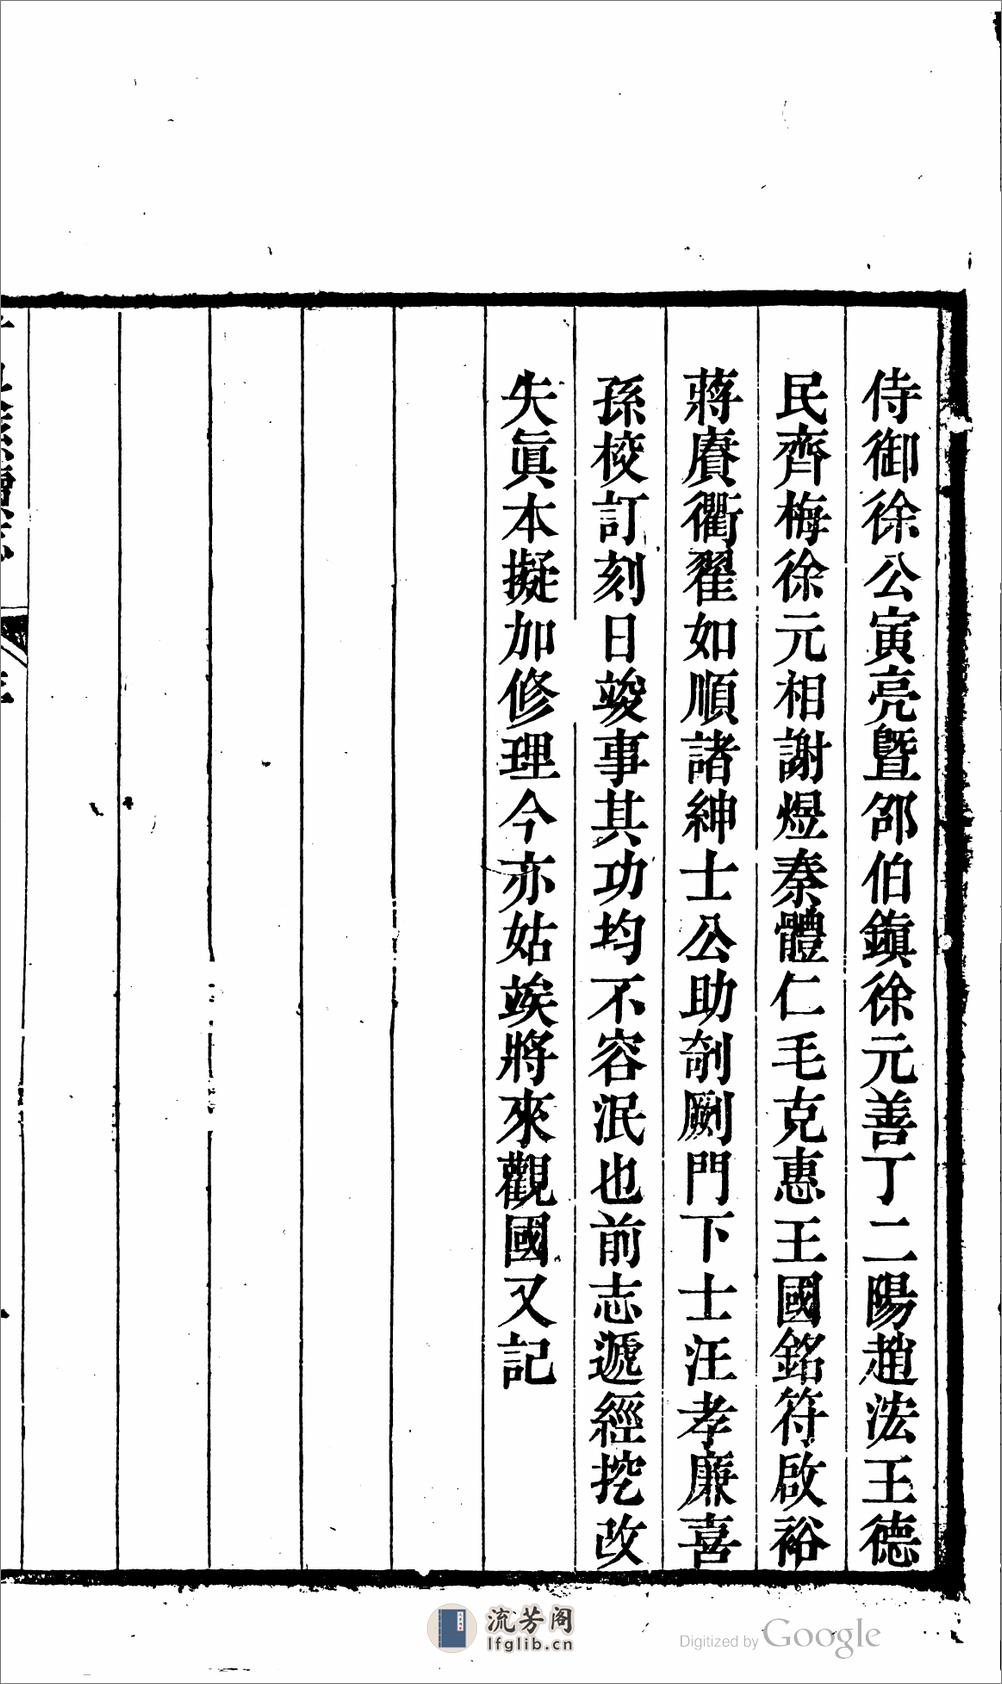 侍御徐公寅亮暨邵伯鎮徐元善丁二陽趙浤王德
民齊梅徐元相謝煜秦體仁毛克惠王國銘符啟裕
蔣賡衢翟如順諸紳士公助剞劂門下士汪孝廉喜
孫校訂刻日竣事其功均不容泯也前志遞經挖改
失眞本擬加修理今亦姑竢將來觀國又記
流芳阁
lfglib.cn
Digitized by Google